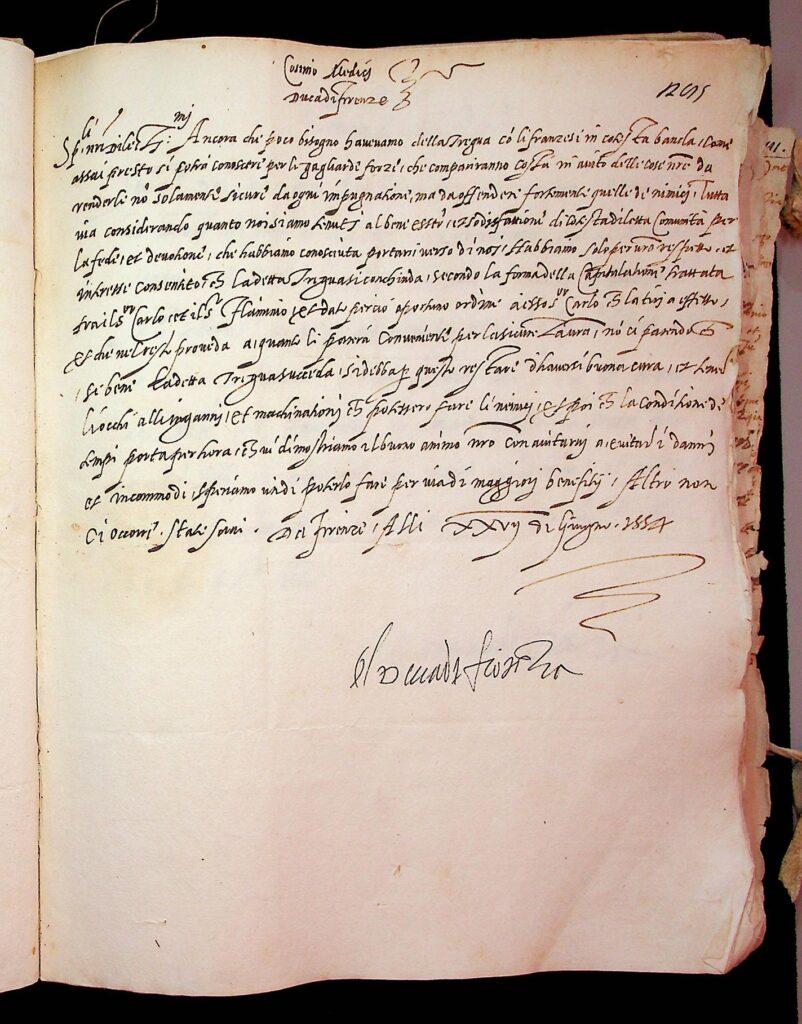 Cosmo Medici
Duca di Firenze
Sp.li n.ri Dilett.mi Ancora che poco bisogno havevamo della Tregua cō li franzesi in cotesta banda, come
assai presto si potrà conoscere per le gagliarde forze, che compariranno costà in aiuto delle cose nre da
renderle nō solamente sicure da ogni impugnatione, ma da offendere fortemente quelle de nimici, Tutta
via considerando quanto noi siamo tenuti al bene essere, et sodisfattione di cotesta diletta Comunità per
la fede, et devotione, che habbiamo conosciuta portarsi verso di noi, Habbiamo solo per vro rispetto, et
interesse consentito, che la detta Tregua si conchiuda, secondo la forma della Capitulatione trattata
tra il S.or Carlo et il S.r Flaminio, et dato perciò oportuno ordine a esso S.or Carlo che la tiri a effetto,
et che nel resto proveda a quanto li parerà conveniente per la sicurezza, nō ci parendo che
se bene la detta Tregua succeda, si debba p questo restare d'haversi buona cura, et tener
li occhi alli inganni, et machinationi che potessero fare li nimici, et poi che la conditione de
tempi porta per hora, che vi dimostriamo il buono animo nro con aiutarvi a evitar i danni
et incommodi, speriamo anchora poterlo fare per via di maggiori benefitij, Altro non
ci occorre. State sani. Da Firenze, Alli XXVIJ di Giugno. 1554
el duca di fiorenza